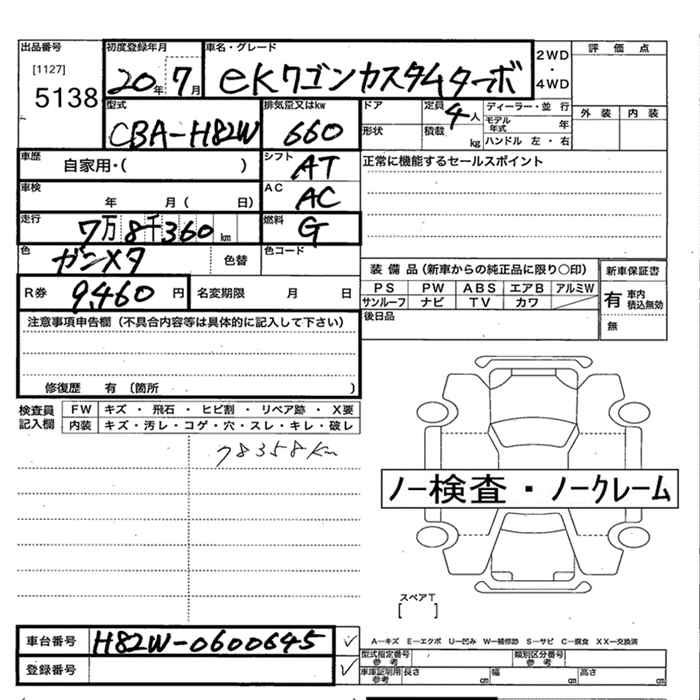 出品番号 初度登録年月 車名・グレード 2WD ・ 4WD 評価点
[1127]
5138 20年 7月 eKワゴンカスタムターボ
型式 排気量又はkw ドア 定員 4人 ディーラー・並行 外装 内装
CBA-H82W 660 形状 積載 kg モデル年式 年
ハンドル 左・右
車歴 自家用・( ) シフト AT 正常に機能するセールスポイント
車検 年 月( 日) AC AC
走行 7万8千360km 燃料 G
色 ガンメタ 色替 色コード
装備品(新車からの純正品に限り○印) 新車保証書
R券 9,460円 名変期限 月 日 PS PW ABS エアB アルミW 有 車内積込無効
サンルーフ ナビ TV カワ
注意事項申告欄(不具合内容等は具体的に記入して下さい) 後日品 無
修復歴 有 (箇所 )
検査員記入欄 FW キズ・飛石・ヒビ割・リペア跡・X要
内装 キズ・汚レ・コゲ・穴・スレ・キレ・破レ
78358km
ノー検査・ノークレーム
スペアT
[ ]
車台番号 H82W-0600645 ✓ A—キズ E—エクボ U—凹み W—補修跡 S—サビ C—腐食 XX—交換済
型式指定番号 参考 類別区分番号 参考
登録番号 ✓ 車庫証明用 参考 長さ cm 幅 cm 高さ cm